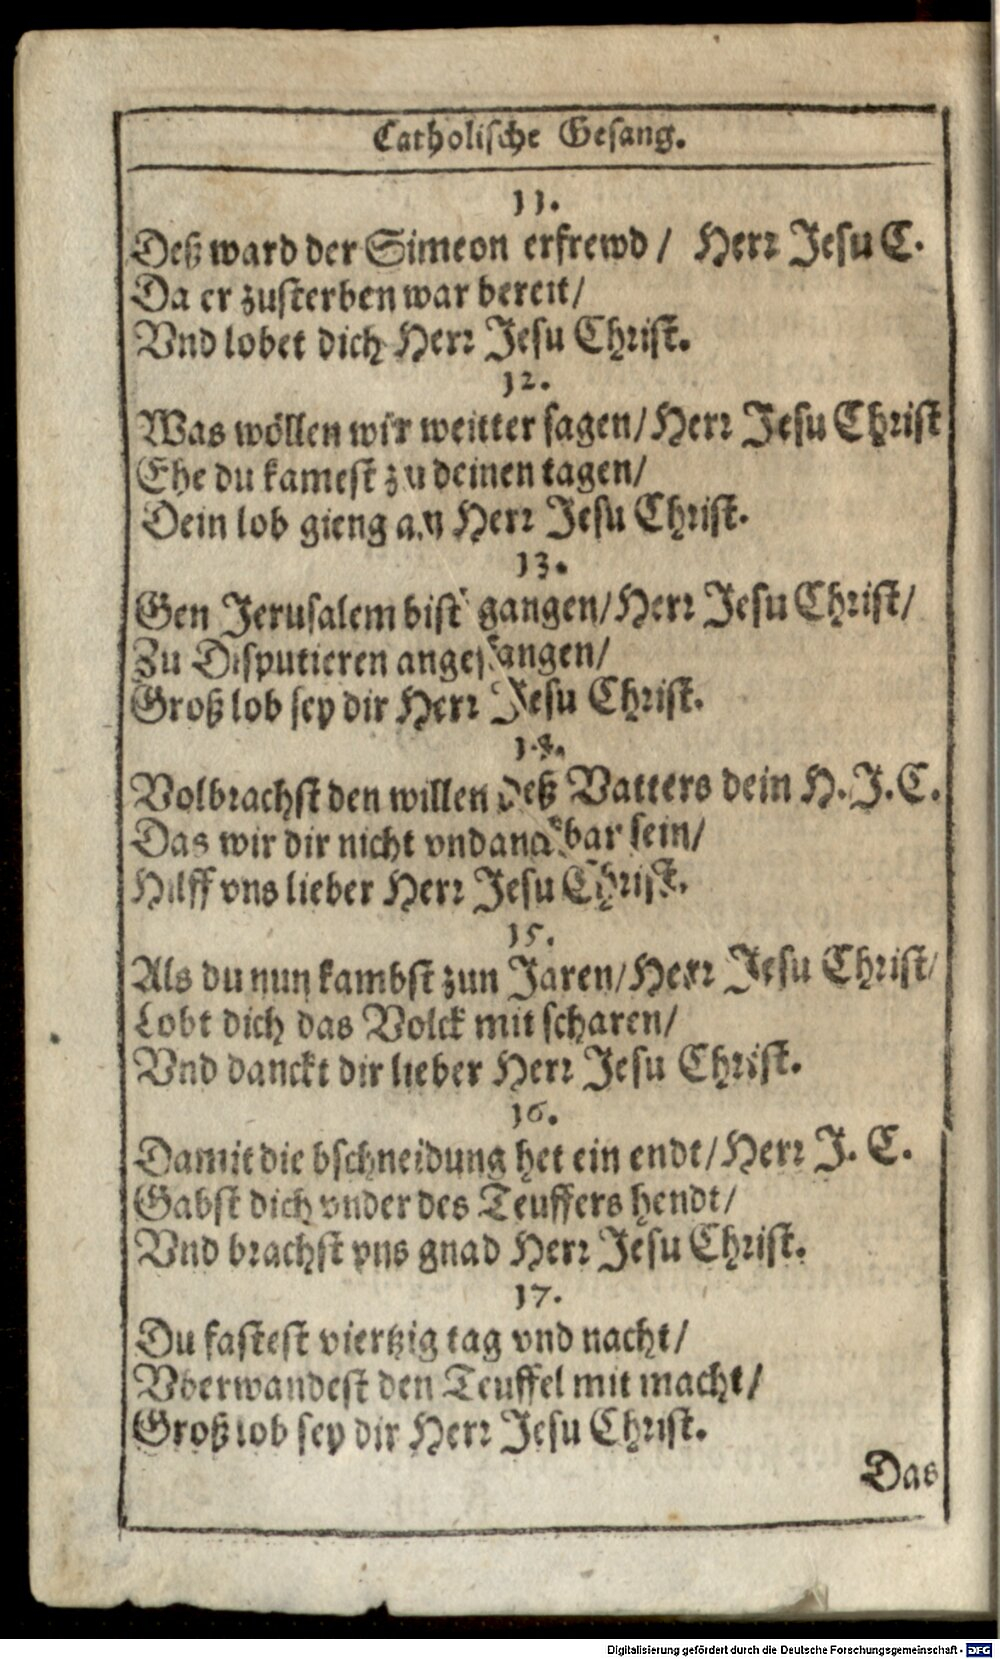 Catholische Gesang.
11.
Deß ward der Simeon erfrewd / Herr Jesu C.
Da er zusterben war bereit/
Vnd lobet dich Herr Jesu Christ.
12.
Was wöllen wir weitter sagen/ Herr Jesu Christ
Ehe du kamest zu deinen tagen/
Dein lob gieng an Herr Jesu Christ.
13.
Gen Jerusalem bist gangen/ Herr Jesu Christ/
Zu Disputieren angefangen/
Groß lob sey dir Herr Jesu Christ.
14.
Volbrachst den willen deß Vatters dein H. J. C.
Das wir dir nicht vndanckbar sein/
Hilff vns lieber Herr Jesu Christ.
15.
Als du nun kambst zun Jaren/ Herr Jesu Christ/
Lobt dich das Volck mit scharen/
Vnd danckt dir lieber Herr Jesu Christ.
16.
Damit die bschneidung het ein endt/ Herr J. C.
Gabst dich vnder des Teuffers hendt/
Vnd brachst vns gnad Herr Jesu Christ.
17.
Du fastest viertzig tag vnd nacht/
Vberwandest den Teuffel mit macht/
Groß lob sey dir Herr Jesu Christ.
Das
Digitalisierung gefördert durch die Deutsche Forschungsgemeinschaft - DFG